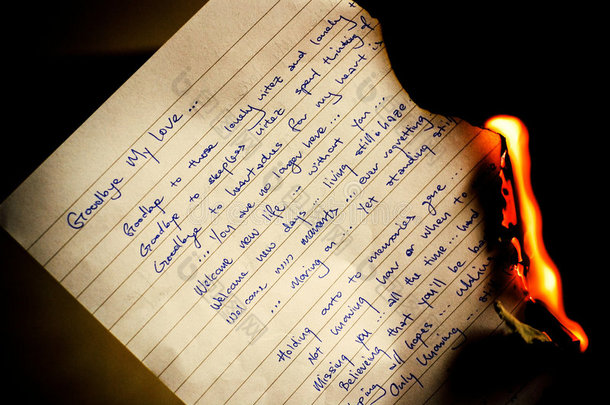 Goodbye My Love ...
Goodbye to those lonely nitez and lonely
Goodbye to sleepless nitez spent thinking of
Goodbye to heartaches for my heart is
... You are no longer here ...
Welcome new life ... without you ...
Welcome new days ... living still a haze
Welcome new moments ... ever regretting
... Moving on ... Yet standing still
Holding onto to memories gone ...
Not knowing how or when to
Missing you ... all the time ... hard
Believing that you'll be
all hopes ...
Only knowing ...